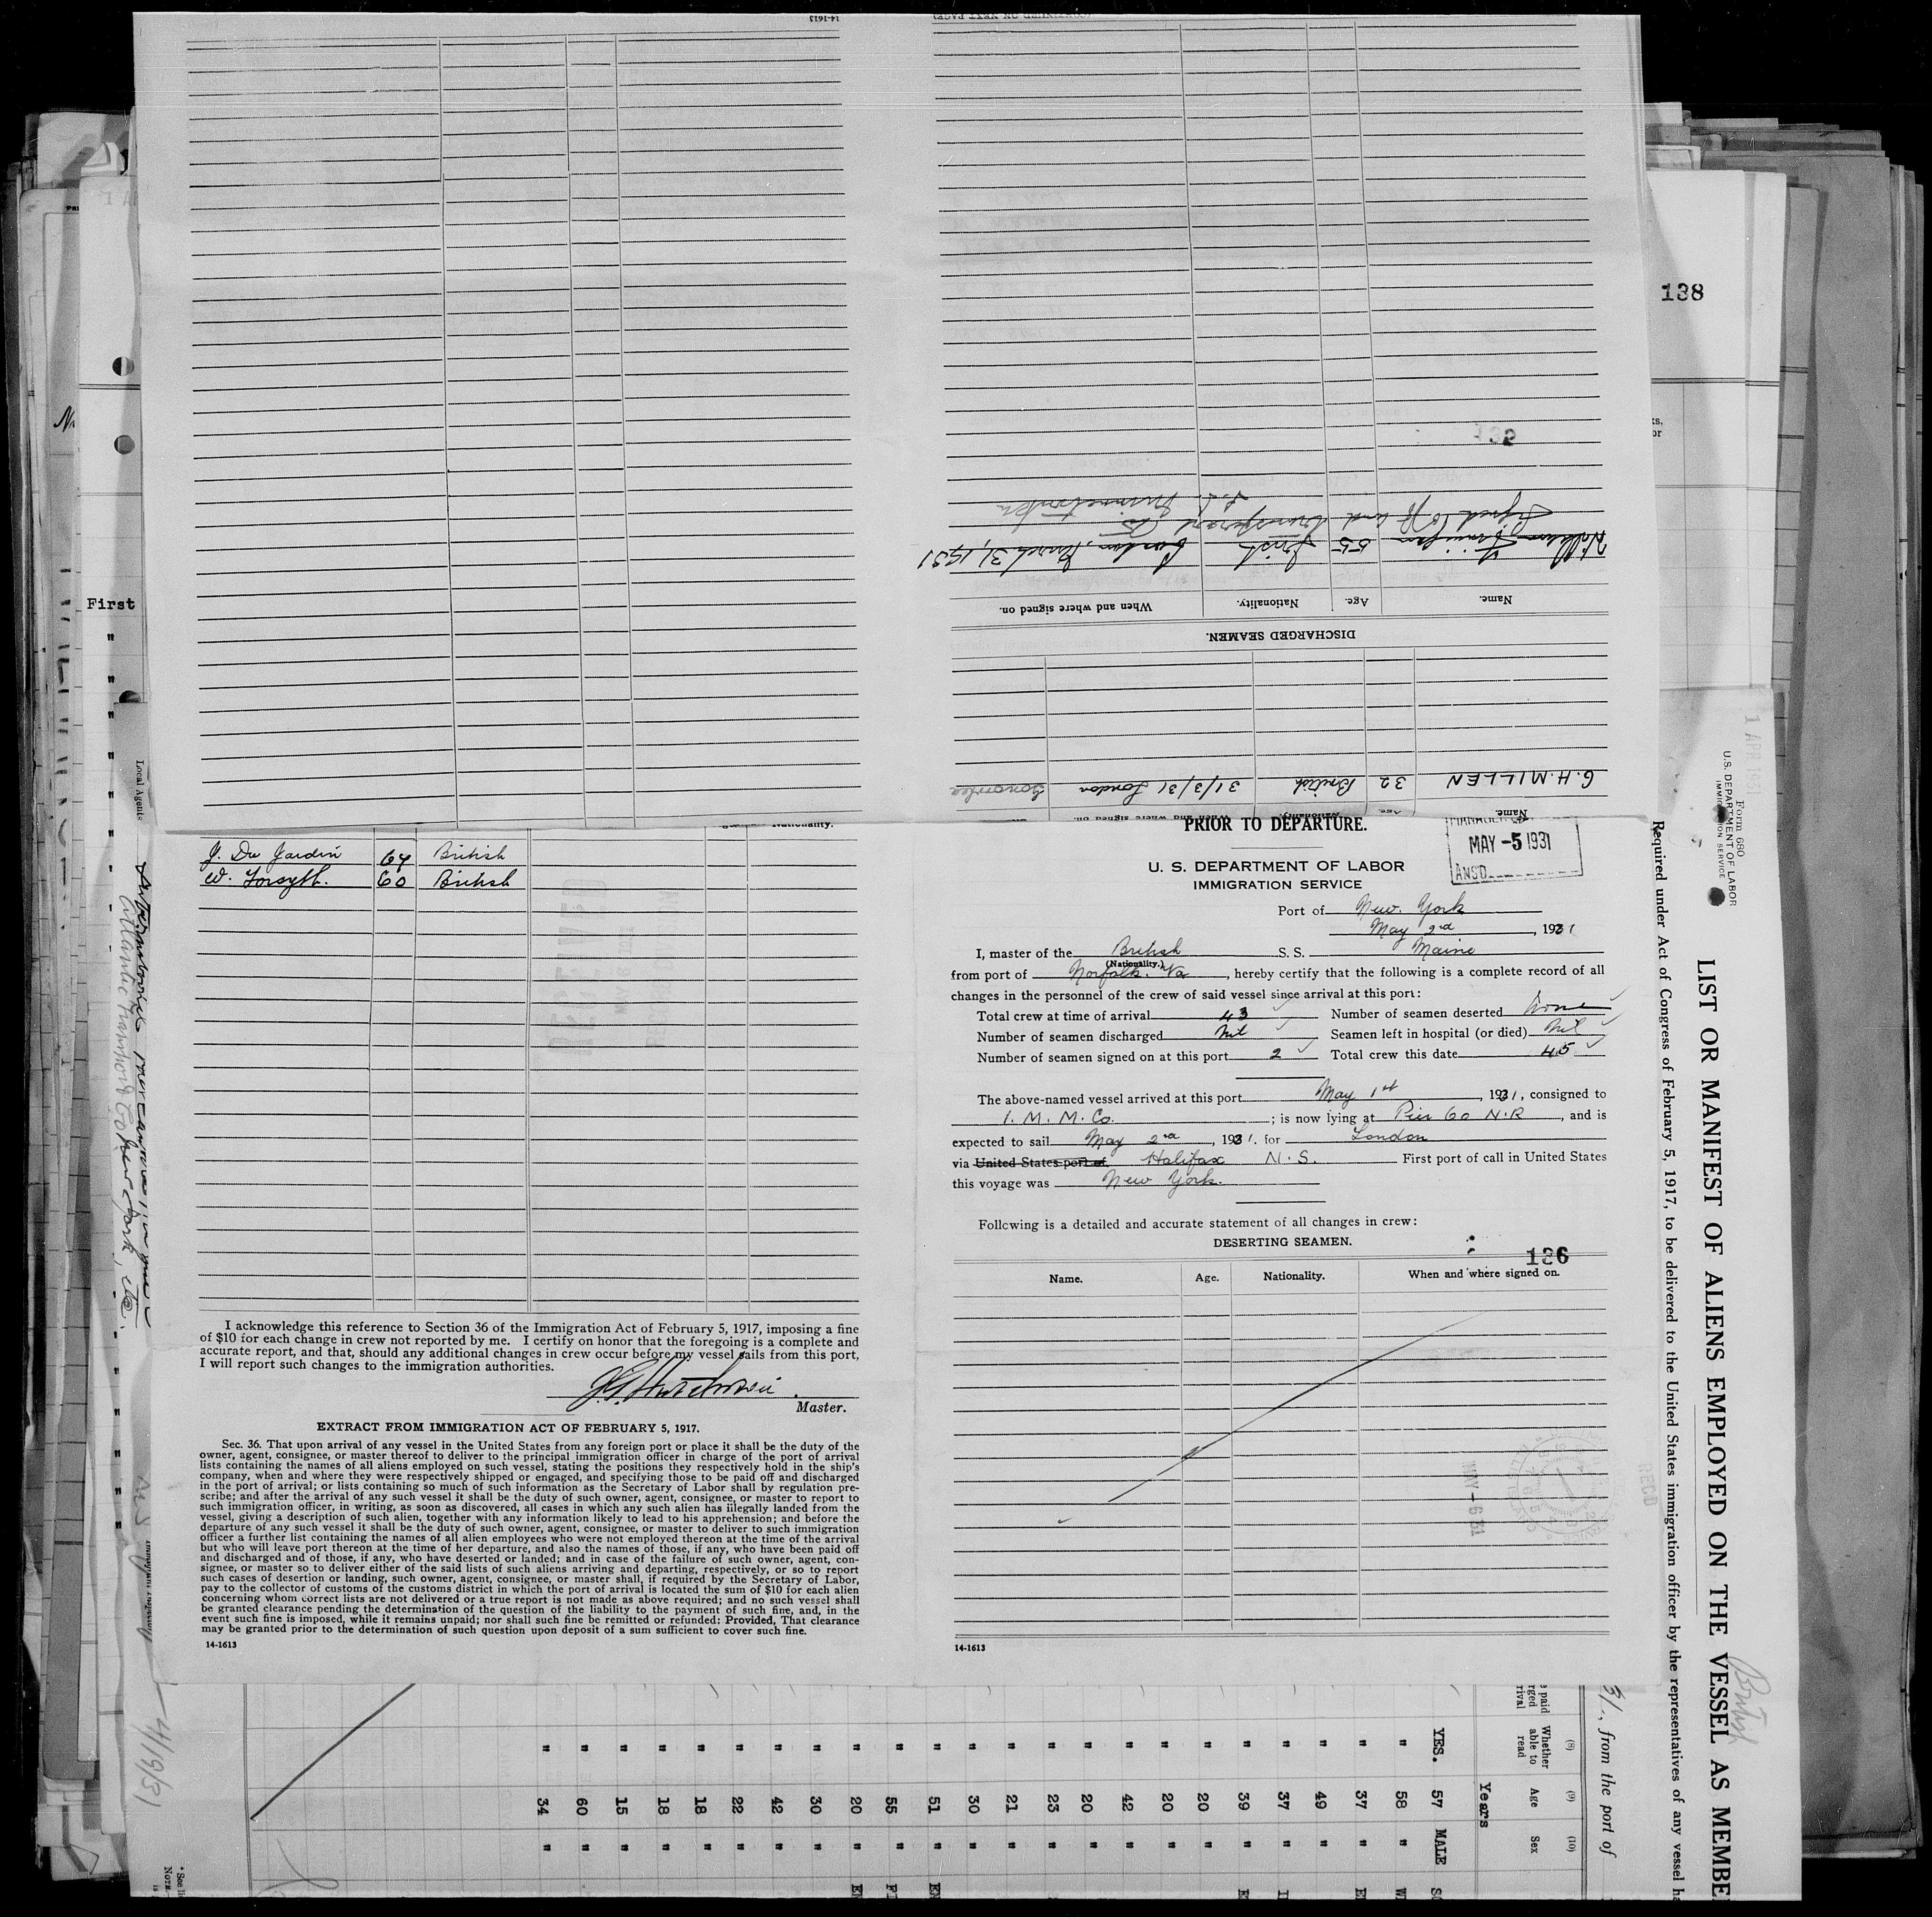 14-1613
138
132
William Finnigan 55 Irish London, March 31, 1931
Signed off and transferred to
S.S. Minnetonka
Name. Age. Nationality. When and where signed on.
DISCHARGED SEAMEN.
G. H. MILLEN 32 British 31/3/31 London
Name. Age. Nationality. When and where signed on.
Nationality.
J. Du Jardin 64 British
W. Forsyth. 60 British
I acknowledge this reference to Section 36 of the Immigration Act of February 5, 1917, imposing a fine
of $10 for each change in crew not reported by me. I certify on honor that the foregoing is a complete and
accurate report, and that, should any additional changes in crew occur before my vessel sails from this port,
I will report such changes to the immigration authorities.
Master.
EXTRACT FROM IMMIGRATION ACT OF FEBRUARY 5, 1917.
Sec. 36. That upon arrival of any vessel in the United States from any foreign port or place it shall be the duty of the
owner, agent, consignee, or master thereof to deliver to the principal immigration officer in charge of the port of arrival
lists containing the names of all aliens employed on such vessel, stating the positions they respectively hold in the ship's
company, when and where they were respectively shipped or engaged, and specifying those to be paid off and discharged
in the port of arrival; or lists containing so much of such information as the Secretary of Labor shall by regulation pre-
scribe; and after the arrival of any such vessel it shall be the duty of such owner, agent, consignee, or master to report to
such immigration officer, in writing, as soon as discovered, all cases in which any such alien has illegally landed from the
vessel, giving a description of such alien, together with any information likely to lead to his apprehension; and before the
departure of any such vessel it shall be the duty of such owner, agent, consignee, or master to deliver to such immigration
officer a further list containing the names of all alien employees who were not employed thereon at the time of the arrival
but who will leave port thereon at the time of her departure, and also the names of those, if any, who have been paid off
and discharged and of those, if any, who have deserted or landed; and in case of the failure of such owner, agent, con-
signee, or master so to deliver either of the said lists of such aliens arriving and departing, respectively, or so to report
such cases of desertion or landing, such owner, agent, consignee, or master shall, if required by the Secretary of Labor,
pay to the collector of customs of the customs district in which the port of arrival is located the sum of $10 for each alien
concerning whom correct lists are not delivered or a true report is not made as above required; and no such vessel shall
be granted clearance pending the determination of the question of the liability to the payment of such fine, and, in the
event such fine is imposed, while it remains unpaid; nor shall such fine be remitted or refunded: Provided, That clearance
may be granted prior to the determination of such question upon deposit of a sum sufficient to cover such fine.
14-1613
PRIOR TO DEPARTURE.
MAY -5 1931
U. S. DEPARTMENT OF LABOR
IMMIGRATION SERVICE
Port of New York
May 2nd, 1931
I, master of the British S. S. Maine
(Nationality.)
from port of Norfolk. Va, hereby certify that the following is a complete record of all
changes in the personnel of the crew of said vessel since arrival at this port:
Total crew at time of arrival 43 Number of seamen deserted None
Number of seamen discharged Nil Seamen left in hospital (or died) Nil
Number of seamen signed on at this port 2 Total crew this date 45
The above-named vessel arrived at this port May 1st, 1931, consigned to
I. M. M. Co. ; is now lying at Pier 60 N.R, and is
expected to sail May 2nd, 1931. for London
via United States port of Halifax N.S. First port of call in United States
this voyage was New York.
Following is a detailed and accurate statement of all changes in crew:
DESERTING SEAMEN.
136
Name. Age. Nationality. When and where signed on.
MAY -6 31
14-1613
First
Local Agents
Atlantic Transport Co New York,
4/9/31
1 APR 1931
Form 680
U.S. DEPARTMENT OF LABOR
IMMIGRATION SERVICE
LIST OR MANIFEST OF ALIENS EMPLOYED ON THE VESSEL AS MEMBE
Required under Act of Congress of February 5, 1917, to be delivered to the United States immigration officer by the representatives of any vessel ha
British
31., from the port of
(8) (9) (10)
Whether able to read Age Sex
Years
YES. 57 MALE
" 58 "
" 37 "
" 49 "
" 37 "
" 39 "
" 20 "
" 20 "
" 42 "
" 20 "
" 23 "
" 21 "
" 30 "
" 51 "
" 55 "
" 20 "
" 30 "
" 42 "
" 22 "
" 18 "
" 18 "
" 15 "
" 60 "
" 34 "